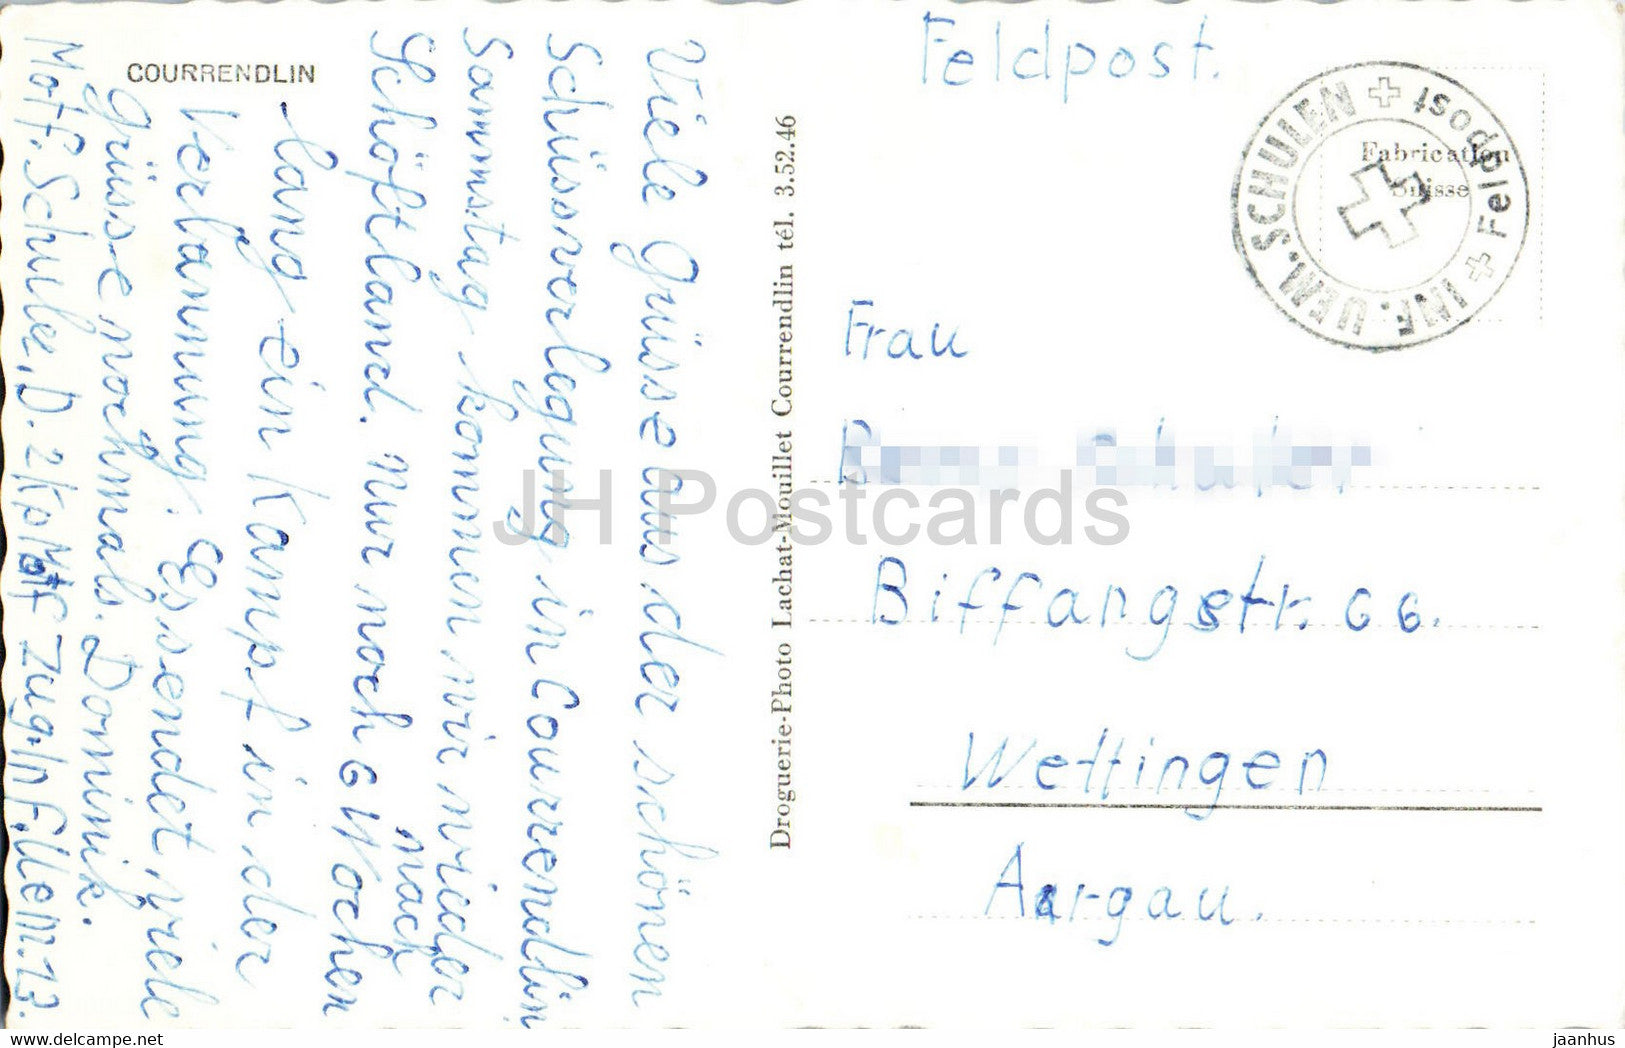 COURRENDLIN
Viele Grüsse aus der schönen
Schüssverlegung in Courrendlin
Sammstag kommen wir wieder
nach
Schöftland. Nur noch 6 Wochen
lang ein Kampf in der
Verbannung. Es sendet viele
Grüsse nochmals. Dominik.
Mot. Schule. D. 2 Kp Mot Zug. Inf. Uem. 13.
Droguerie-Photo Lachat-Mouillet Courrendlin tél. 3.52.46
Feldpost.
+ INF. UEM. SCHULEN + Feldpost
Fabrication
Suisse
Frau
Biffangstr. 66.
Wettingen
Aargau.
JH Postcards
jaanhus